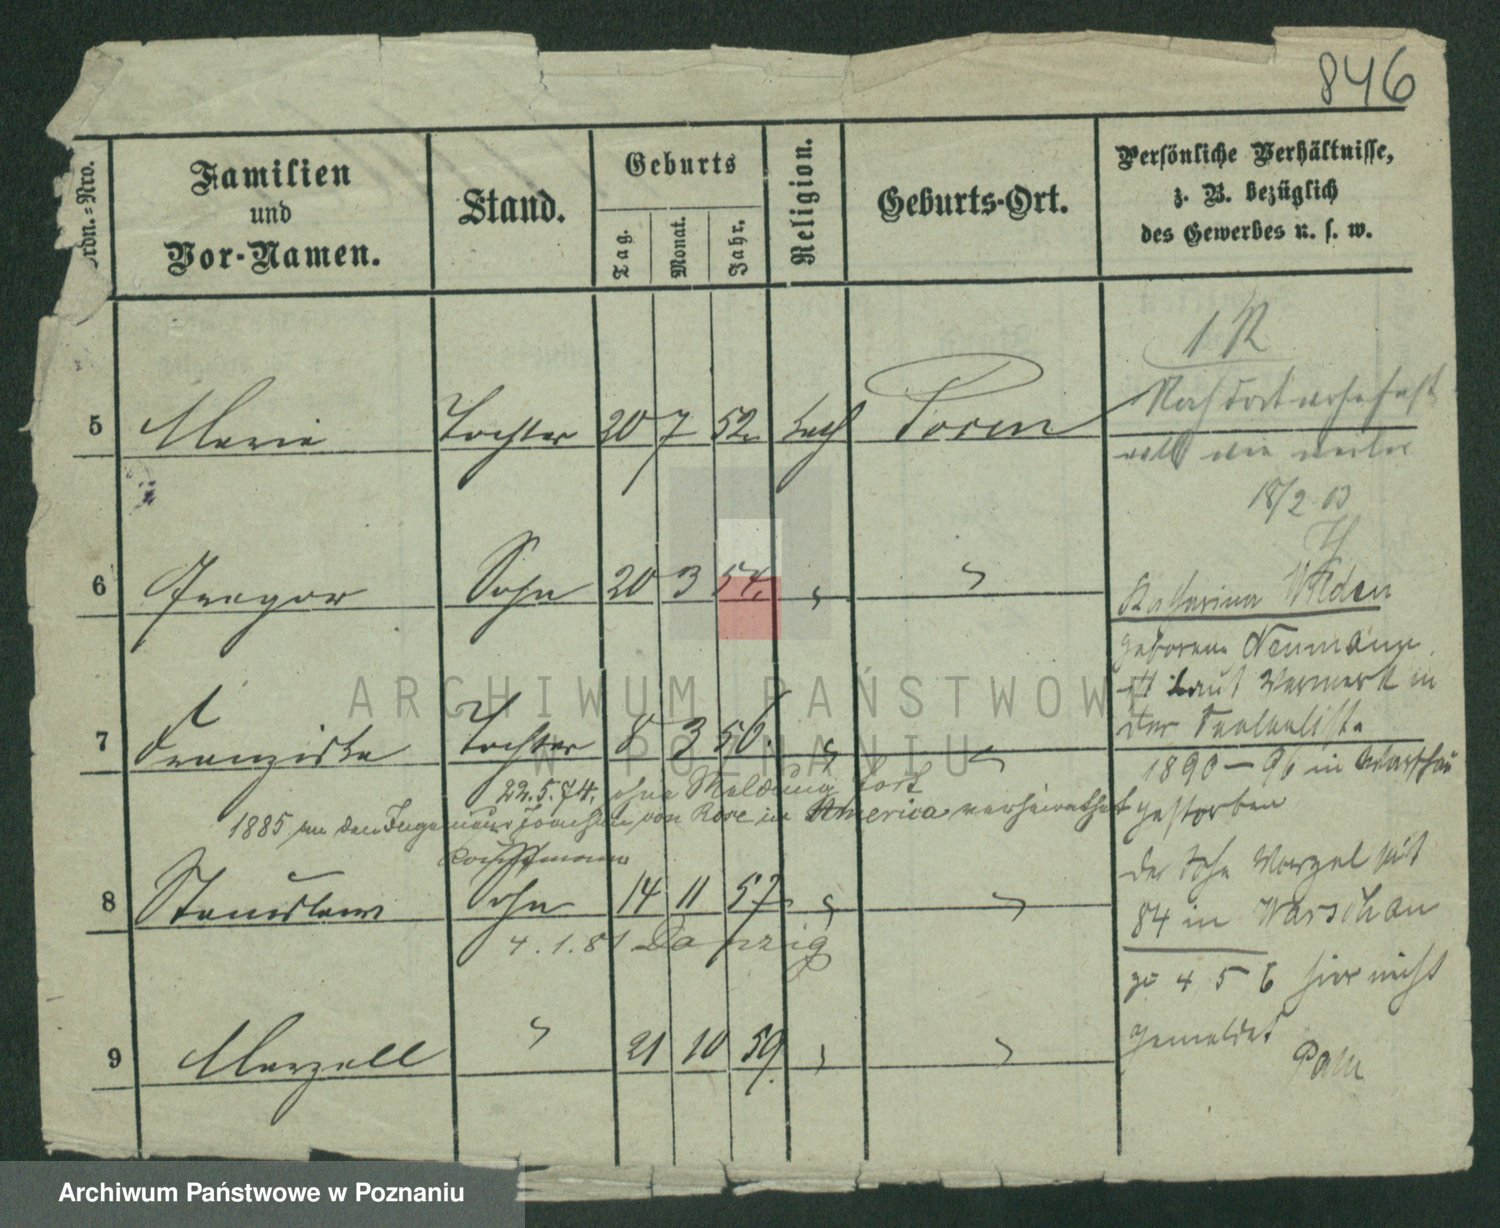 846
Ordn.-Nro.
Familien
und
Vor-Namen.
Stand.
Geburts
Tag.
Monat.
Jahr.
Religion.
Geburts-Ort.
Persönliche Verhältnisse,
z. B. bezüglich
des Gewerbes u. s. w.
1 R
5 Marie Tochter 20 7 52. kath Posen
18/2 03
6 Gregor Sohn 20 3 54. " "
Katharina Wilden
geborene Neumann
ist laut Vermerk in
der
7 Franziska Tochter 8 3 56. " "
1890-96 in Warschau
22.5.74. ohne Meldung fort
1885 an den Ingenieur Joachim von Rose in America verheirathet
gestorben
Kaufmann
8 Stanislaus Sohn 14 11 57 " "
4.1.81 Danzig
der Sohn Marzel seit
84 in Warschau
zu 4 5 6 hier nicht
gemeldet
9 Marzell " 21 10 59. " "
ARCHIWUM PAŃSTWOWE
W POZNANIU
Archiwum Państwowe w Poznaniu